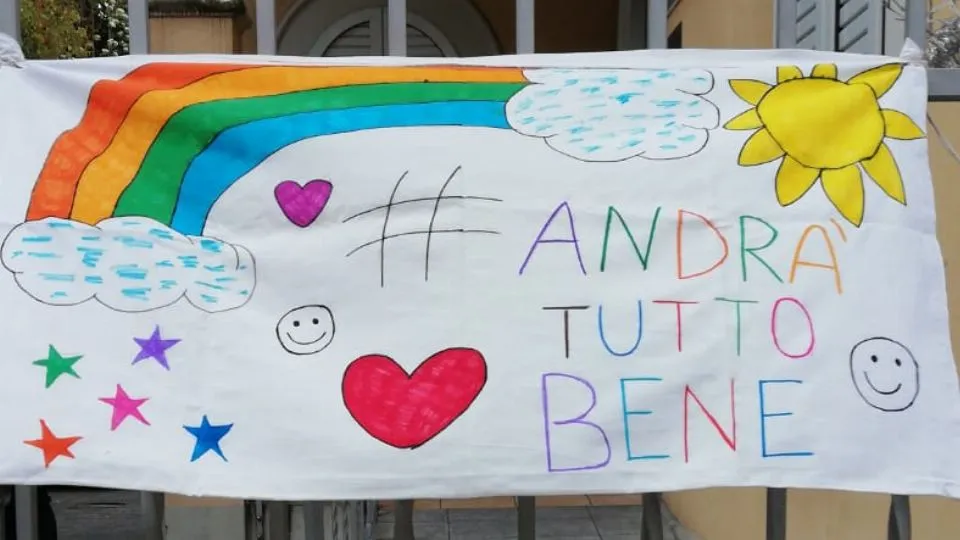 # ANDRÀ
TUTTO
BENE